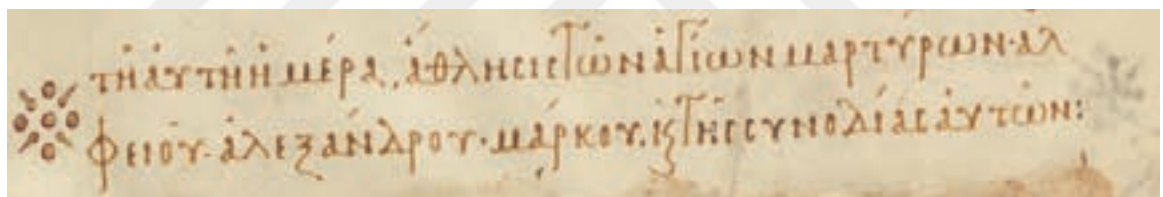 τῆ ἀυτῆ ἡμέρα, ἄθλησις τῶν ἁγίων μαρτύρων· ἀλ
φειοῦ· ἀλεξάνδρου· μάρκου, κ τῆς συνοδίας ἀυτῶν: